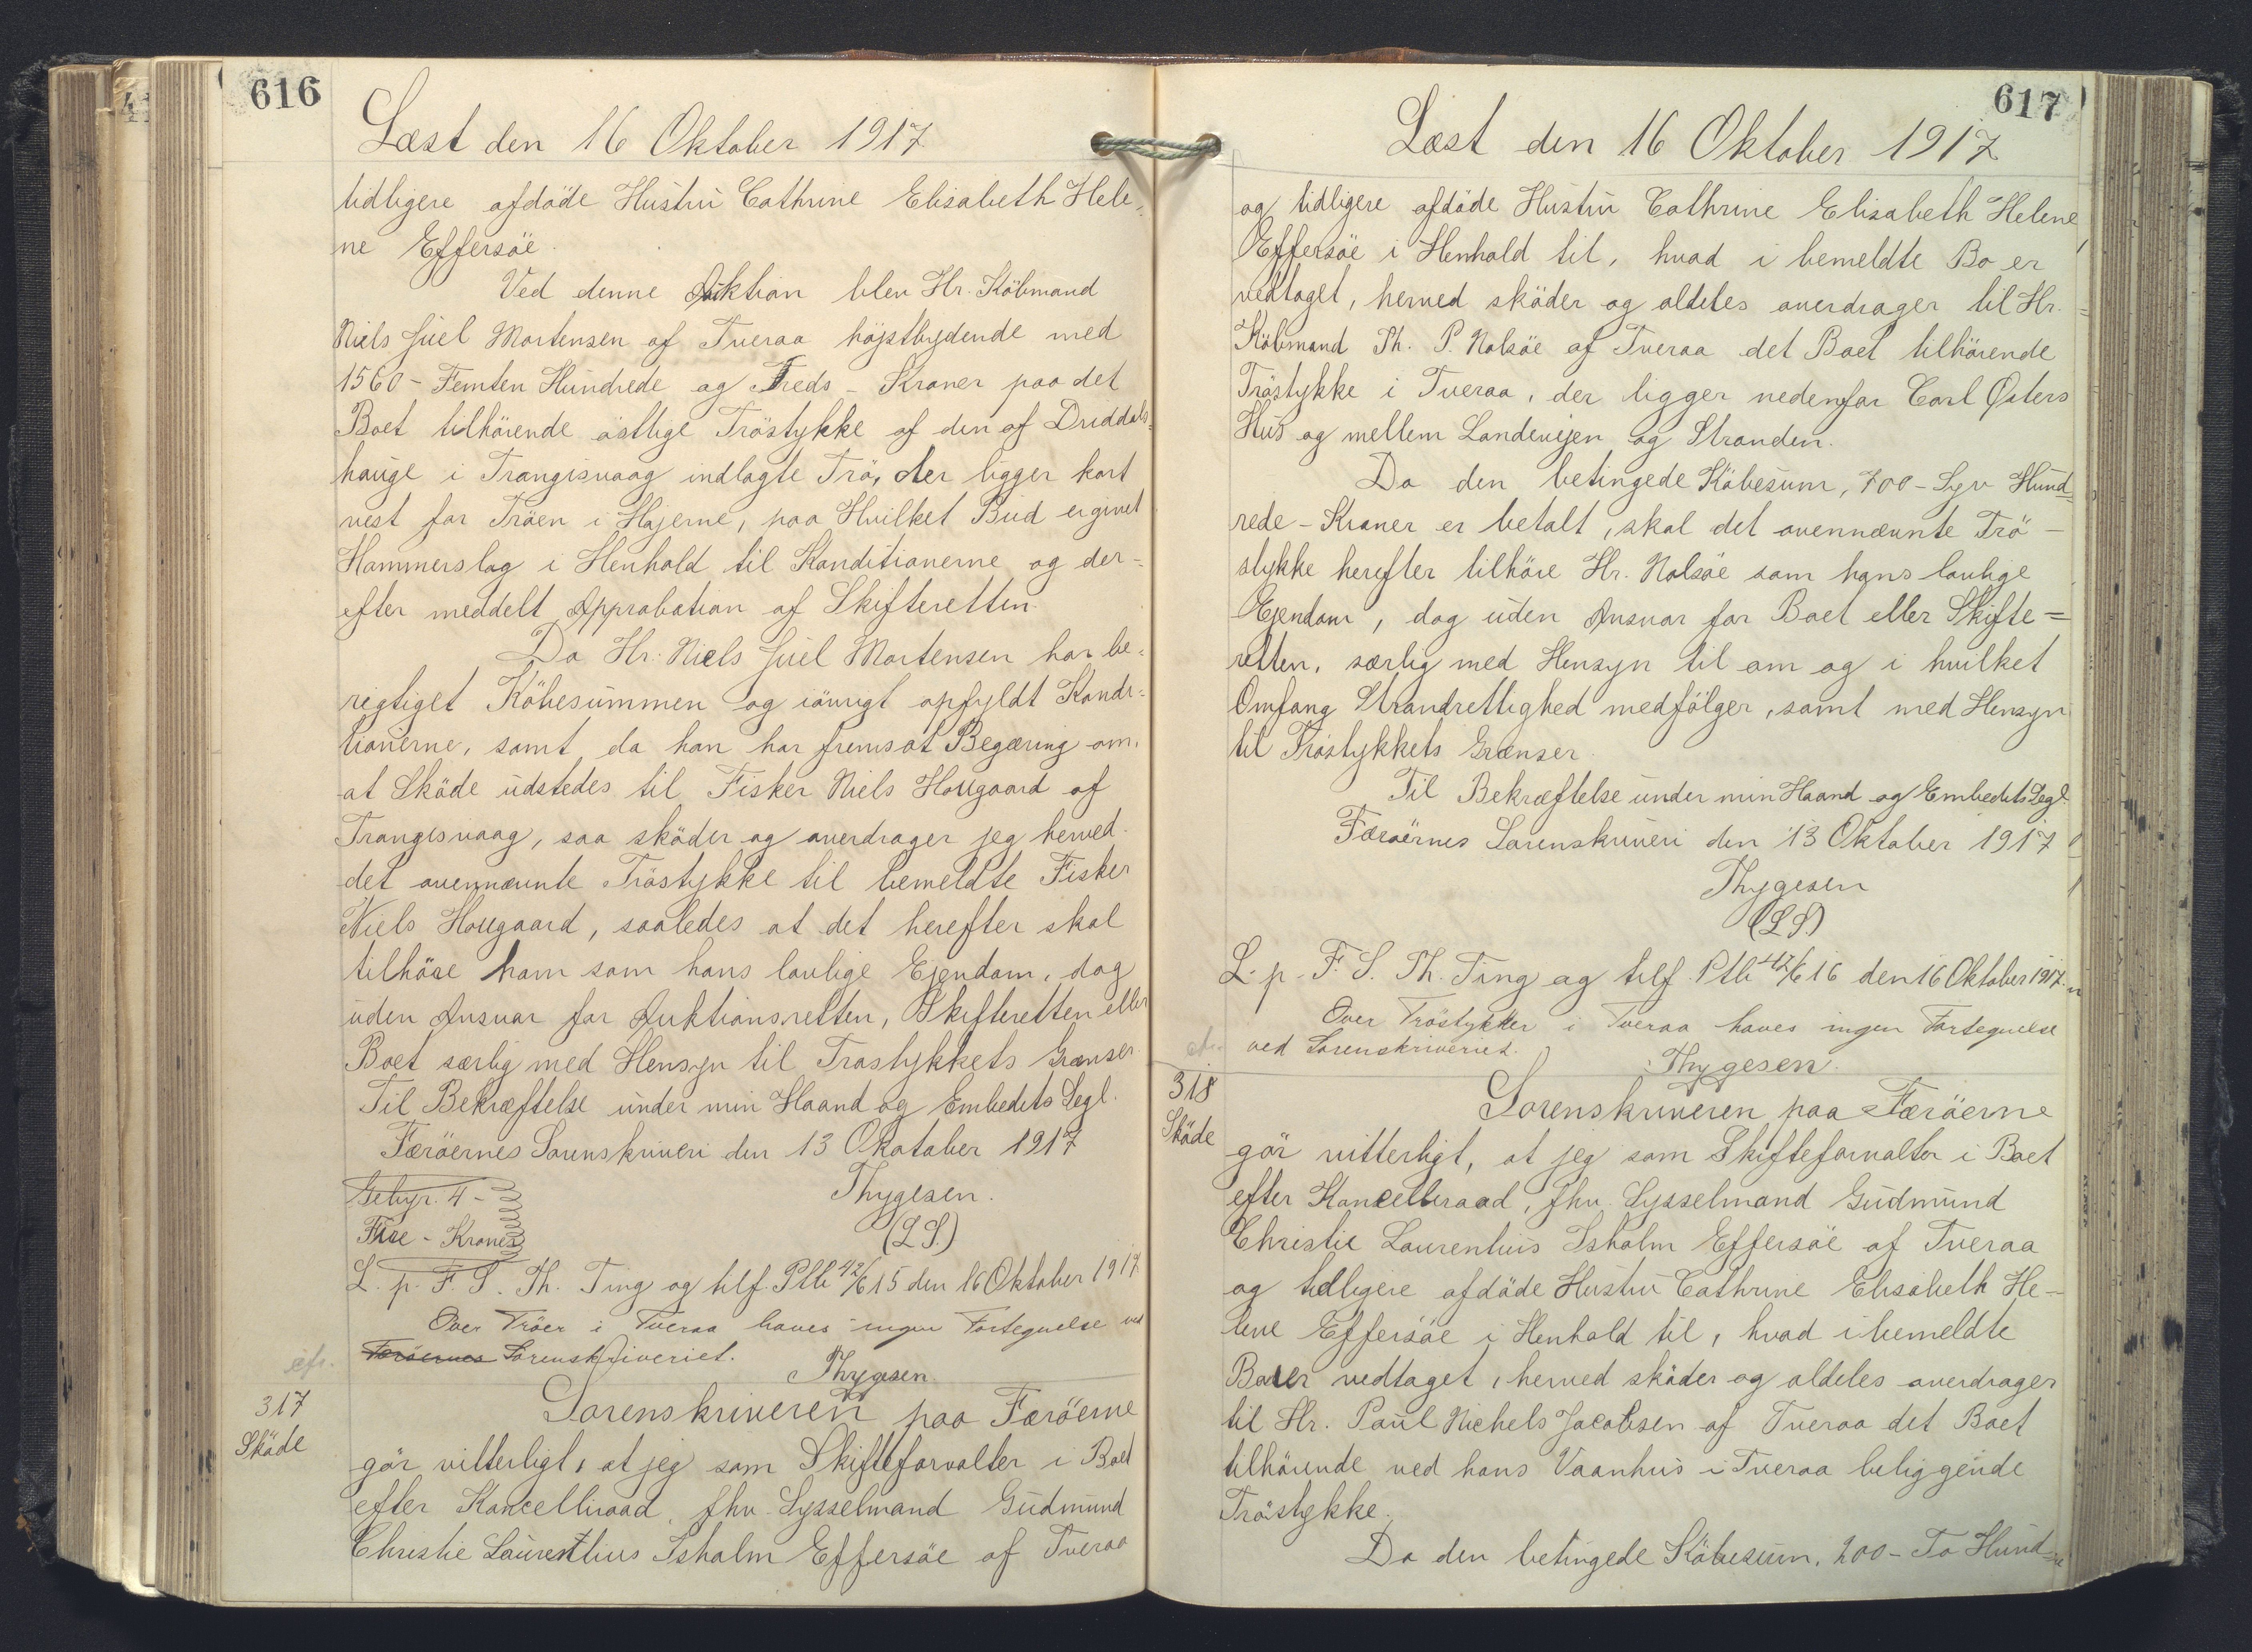 616
Læst den 16 Oktober 1917
tidligere afdöde Hustru Cathrine Elisabeth Hele-
ne Effersöe.
Ved denne Auktion blev Hr. Köbmand
Niels Juel Mortensen af Tveraa höjstbydende med
1560 - Femten Hundrede og Treds - Kroner paa det
Boet tilhörende östlige Tröstykke af den af Druddals-
hauge i Trangisvaag indlagte Trö, der ligger kort
vest for Tröen i Hajerne, paa Hvilket Bud er givet
Hammerslag i Henhold til Konditionerne og der=
efter meddelt Approbation af Skifteretten.
Da Hr. Niels Juel Mortensen har be-
rigtiget Köbesummen og iövrigt opfyldt Kondi-
tionerne, samt da han har fremsat Begæring om,
at Sköde udstedes til Fisker Niels Hougaard af
Trangisvaag, saa sköder og overdrager jeg herved
det ovennævnte Tröstykke til bemeldte Fisker
Niels Hougaard, saaledes at det herefter skal
tilhöre ham som hans lovlige Ejendom, dog
uden Ansvar for Auktionsretten, Skifteretten eller
Boet særlig med Hensyn til Trostykkets Grænser.
Til Bekræftelse under min Haand og Embedets Segl.
Færöernes Sorenskriveri den 13 Okotober 1917
Gebyr. 4 -
Thygesen.
Fire - Kroner
(L S.)
L. p. F. S. Th. Ting og tilf. Ptb 42/615 den 16 Oktober 1917
Over Tröer i Tveraa haves ingen Fortegnelse ved
Færöernes Sorenskriveriet.
Thygesen
317
Sköde
Sorenskriveren paa Færöerne
gör vitterligt, at jeg som Skifteforvalter i Boet
efter Kancelliraad, fhv. Sysselmand Gudmund
Christie Laurentius Isholm Effersöe af Tveraa
617
Læst den 16 Oktober 1917
og tidligere afdöde Hustru Cathrine Elisabeth Helene
Effersöe i Henhold til, hvad i bemeldte Bo er
vedtaget, herved sköder og aldeles overdrager til Hr.
Köbmand Th. P. Nolsöe af Tveraa det Boet tilhörende
Tröstykke i Tveraa, der ligger nedenfor Carl Østers
Hus og mellem Landevejen og Stranden.
Da den betingede Köbesum, 700 - Syv Hund-
rede - Kroner er betalt, skal det ovennævnte Trö-
stykke herefter tilhöre Hr. Nolsöe som hans lovlige
Ejendom, dog uden Ansvar for Boet eller Skifte=
retten, særlig med Hensyn til om og i hvilket
Omfang Strandrettighed medfölger, samt med Hensyn
til Tröstykkets Grænser.
Til Bekræftelse under min Haand og Embedets Segl.
Færoernes Sorenskriveri den 13 Oktober 1917
Thygesen
(L S)
L. p. F. S. Th. Ting og tilf. Ptb 42/616 den 16 Oktober 1917.
Over Tröstykker i Tveraa haves ingen Fortegnelse
ved Sorenskriveriet.
Thygesen.
318
Sköde
Sorenskriveren paa Færöerne
gör vitterligt, at jeg som Skifteforvalter i Boet
efter Kancelliraad, fhv. Sysselmand Gudmund
Christie Laurentius Isholm Effersöe af Tveraa
og tidligere afdöde Hustru Cathrine Elisabeth He-
lene Effersöe i Henhold til, hvad i bemeldte
Bo er vedtaget, herved sköder og aldeles overdrager
til Hr. Paul Nichels Jacobsen af Tveraa det Boet
tilhörende ved hans Vaanhus i Tveraa beliggende
Tröstykke.
Da den betingede Köbesum, 200 - To Hund-